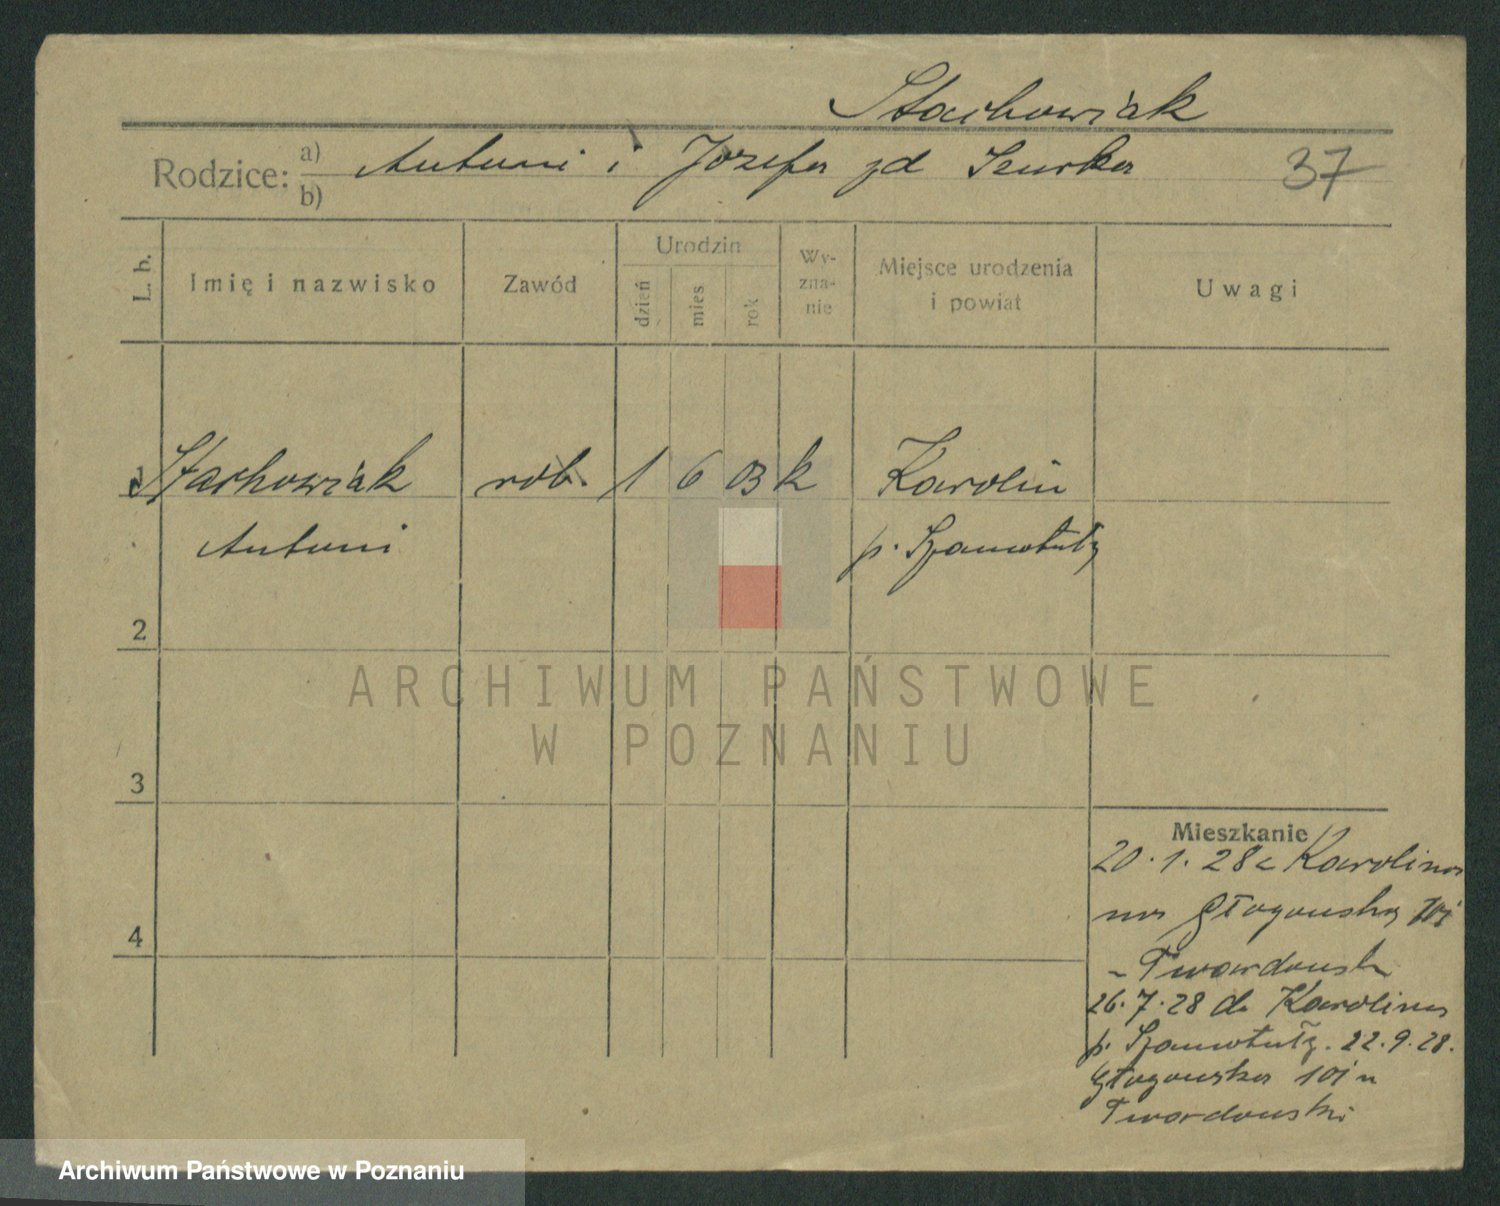 Stachowiak
Rodzice: a) Antoni i Józefa zd Szurka 37
b)
L. b. Imię i nazwisko Zawód Urodzin dzień mies rok Wy-zna-nie Miejsce urodzenia i powiat Uwagi
1 Stachowiak rob. 1 6 03 k Karolin
Antoni p. Szamotuły
2
ARCHIWUM PAŃSTWOWE
W POZNANIU
3
Mieszkanie
20.1.28 z Karolina
4 na Głogowską 101
Twardowsk
26.7.28 do Karolina
p. Szamotuły. 22.9.28.
Głogowska 101 u
Twardowski
Archiwum Państwowe w Poznaniu